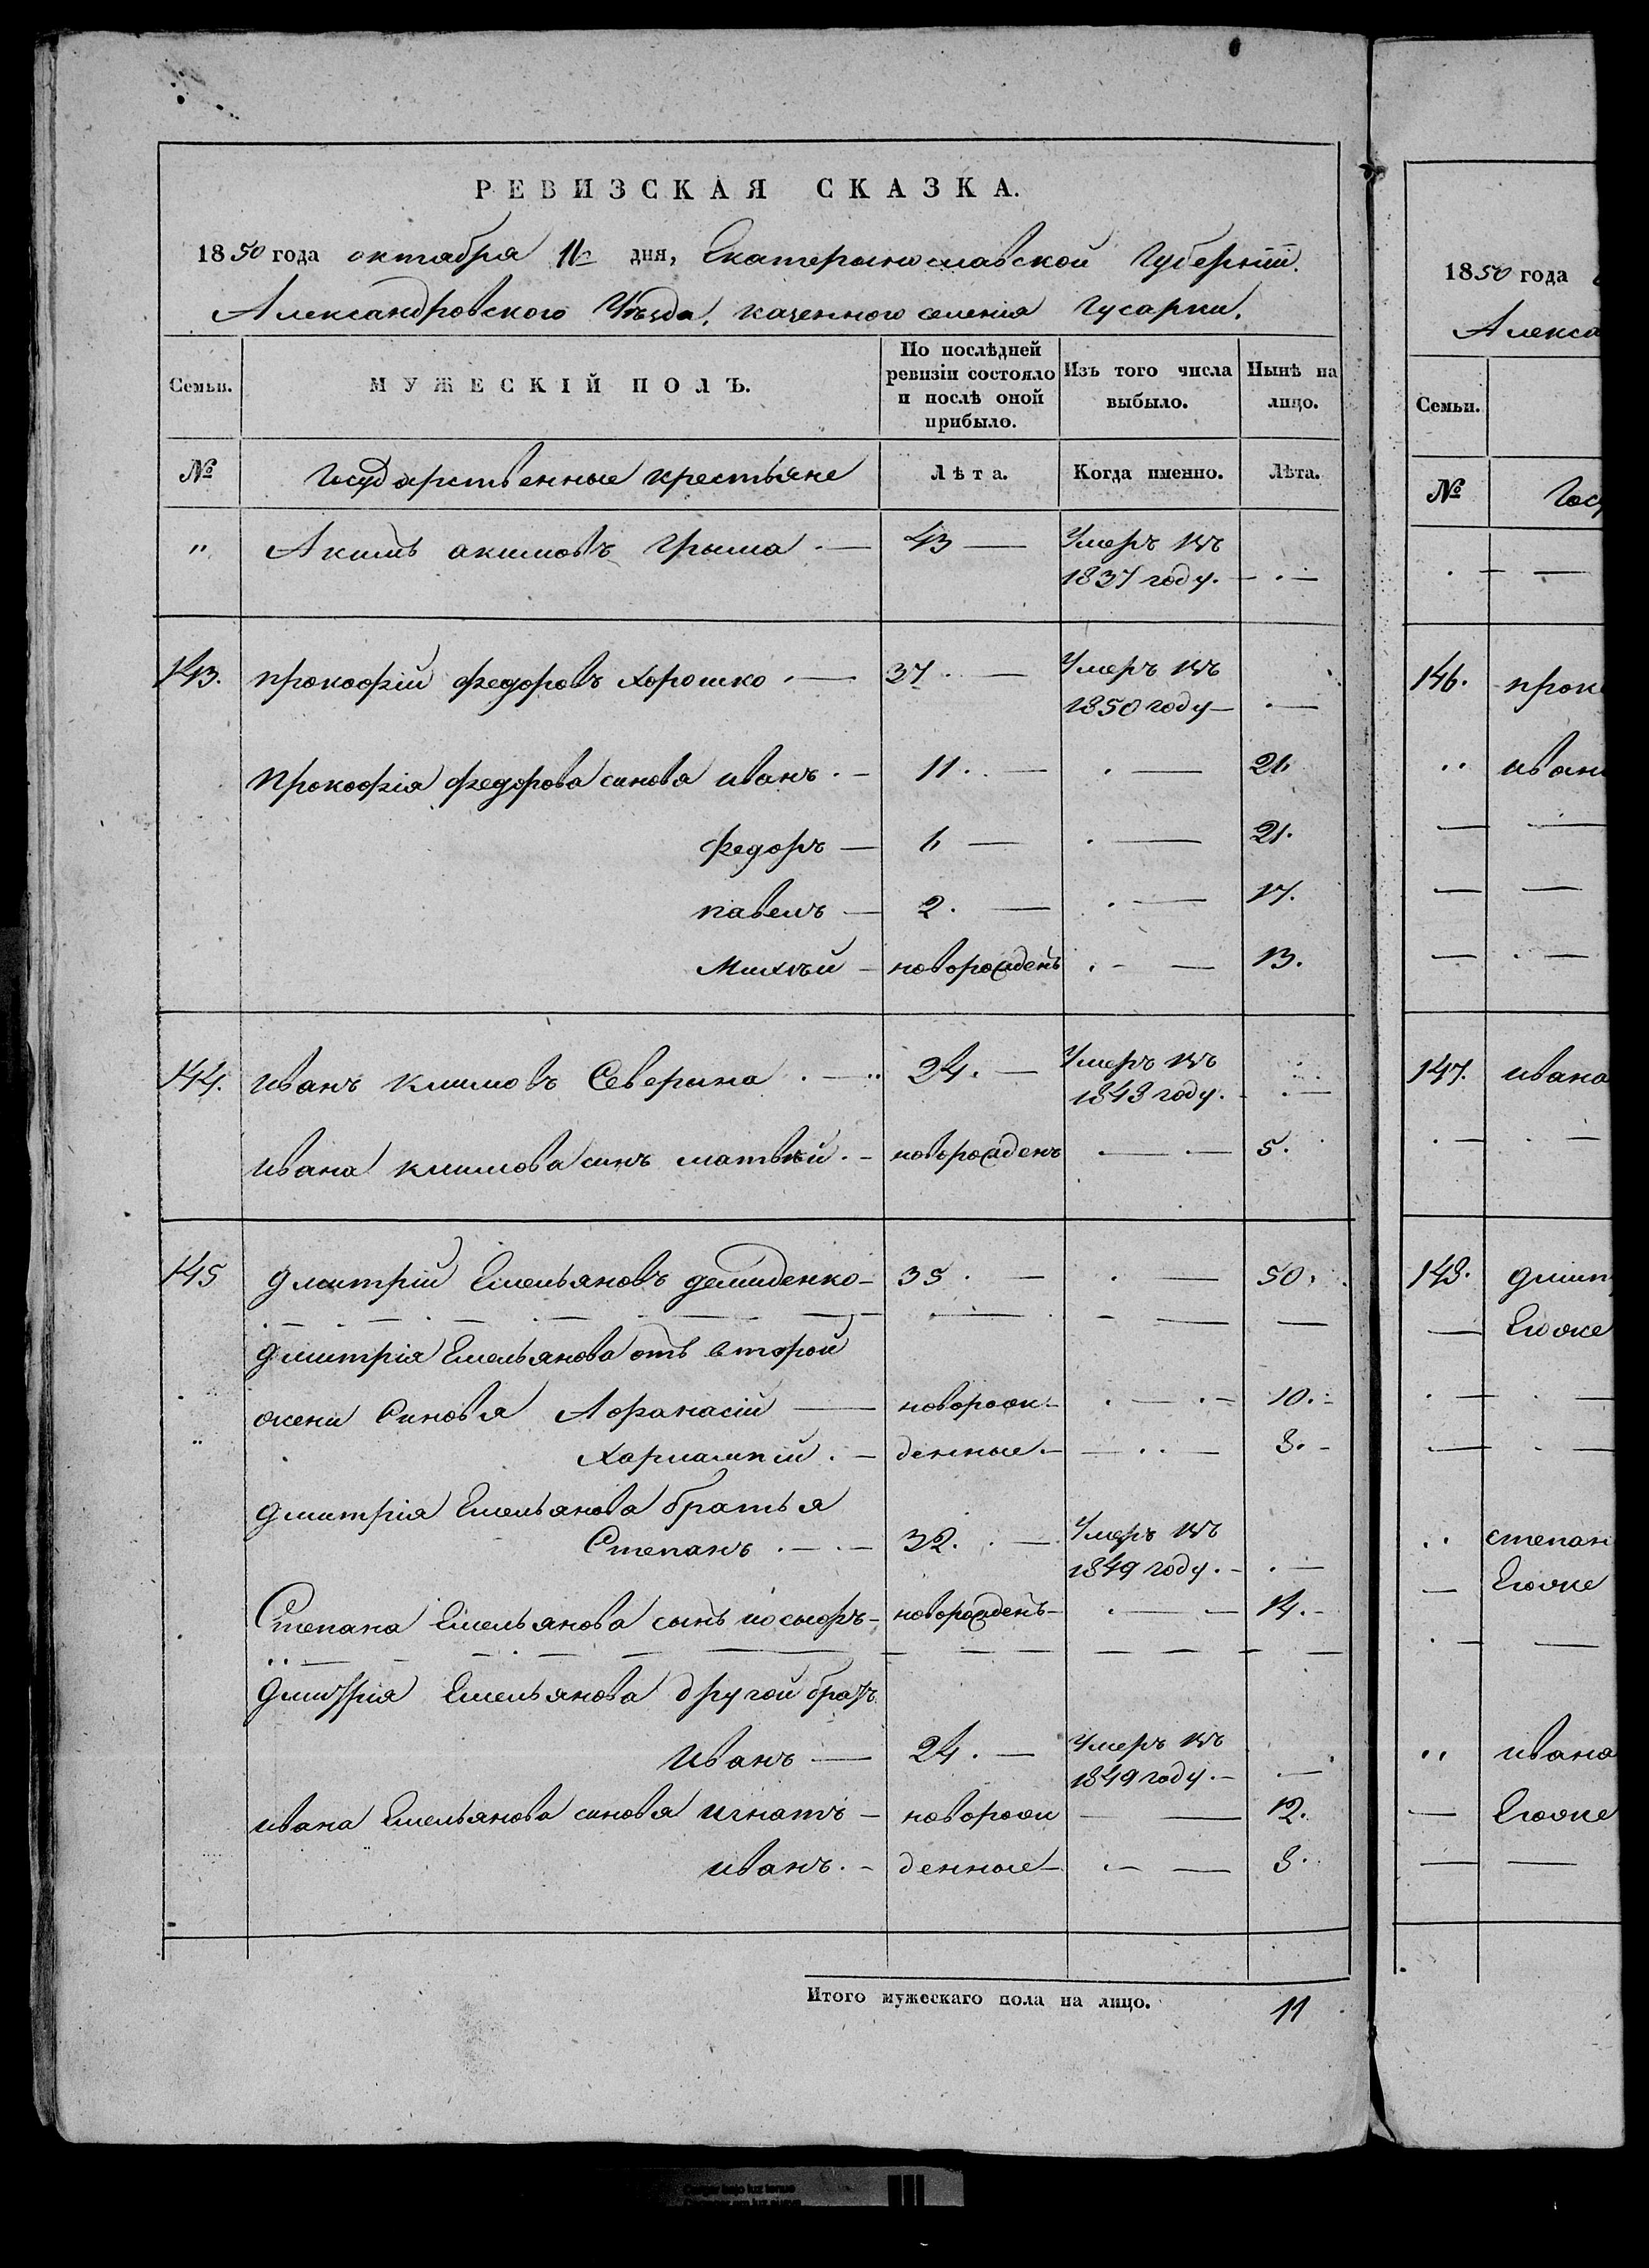 РЕВИЗСКАЯ СКАЗКА.
1850 года октября 16 дня, Екатерыно славской Губерніи.
Александровского Уѣзда, казенного селенія Гусарки.
Семьи. МУЖЕСКІЙ ПОЛЪ. По послѣдней ревизіи состояло и послѣ оной прибыло. Изъ того числа выбыло. Нынѣ на лицо.
№ Государственные крестьяне Лѣта. Когда именно. Лѣта.
" Акимъ акимовъ Грыма — 43 — Умеръ въ
1837 году. — . —
143. прокофій федоровъ Хорошко . — 37 . — Умеръ въ
1850 году — . —
Прокофія федорова синовя иванъ . — 11 . . — . — 26
федоръ — 6 — . — 21.
павелъ — 2. — . — 17.
Михѣй — новорожденъ . - — 13.
144. иванъ климовъ Северына . — .. 24. — Умеръ въ
1843 году. - . —
ивана климова синъ матвѣй . - новорожденъ — . — 5.
145 дмитрій Емельяновъ демиденко — 35 . — . — 50.
дмитрія Емельянова отъ второй
жени Синовя Афанасій — новорож- . — . - 10. -
Харлампій . — денные. — — . . — 8. -
дмитрія Емельянова братья
Степанъ . — . — 32. . — Умеръ въ
1849 году. - . —
Степана Емельянова сынъ иосыфъ — новорожденъ — . — — 14. -
дмитрія Емельянова другой братъ
Иванъ — 24. — Умеръ въ
1849 году. — . —
ивана Емельянова синовя игнатъ — новорож — — 12.
иванъ. — денные — . — — 8.
Итого мужескаго пола на лицо. 11
1850 года
Алекса
Семьи.
№ Госу
146. прок
.. иван
147. ивана
148. дмит
— Еюже
.. степан
— Еюже
.. ивана
— Еюже